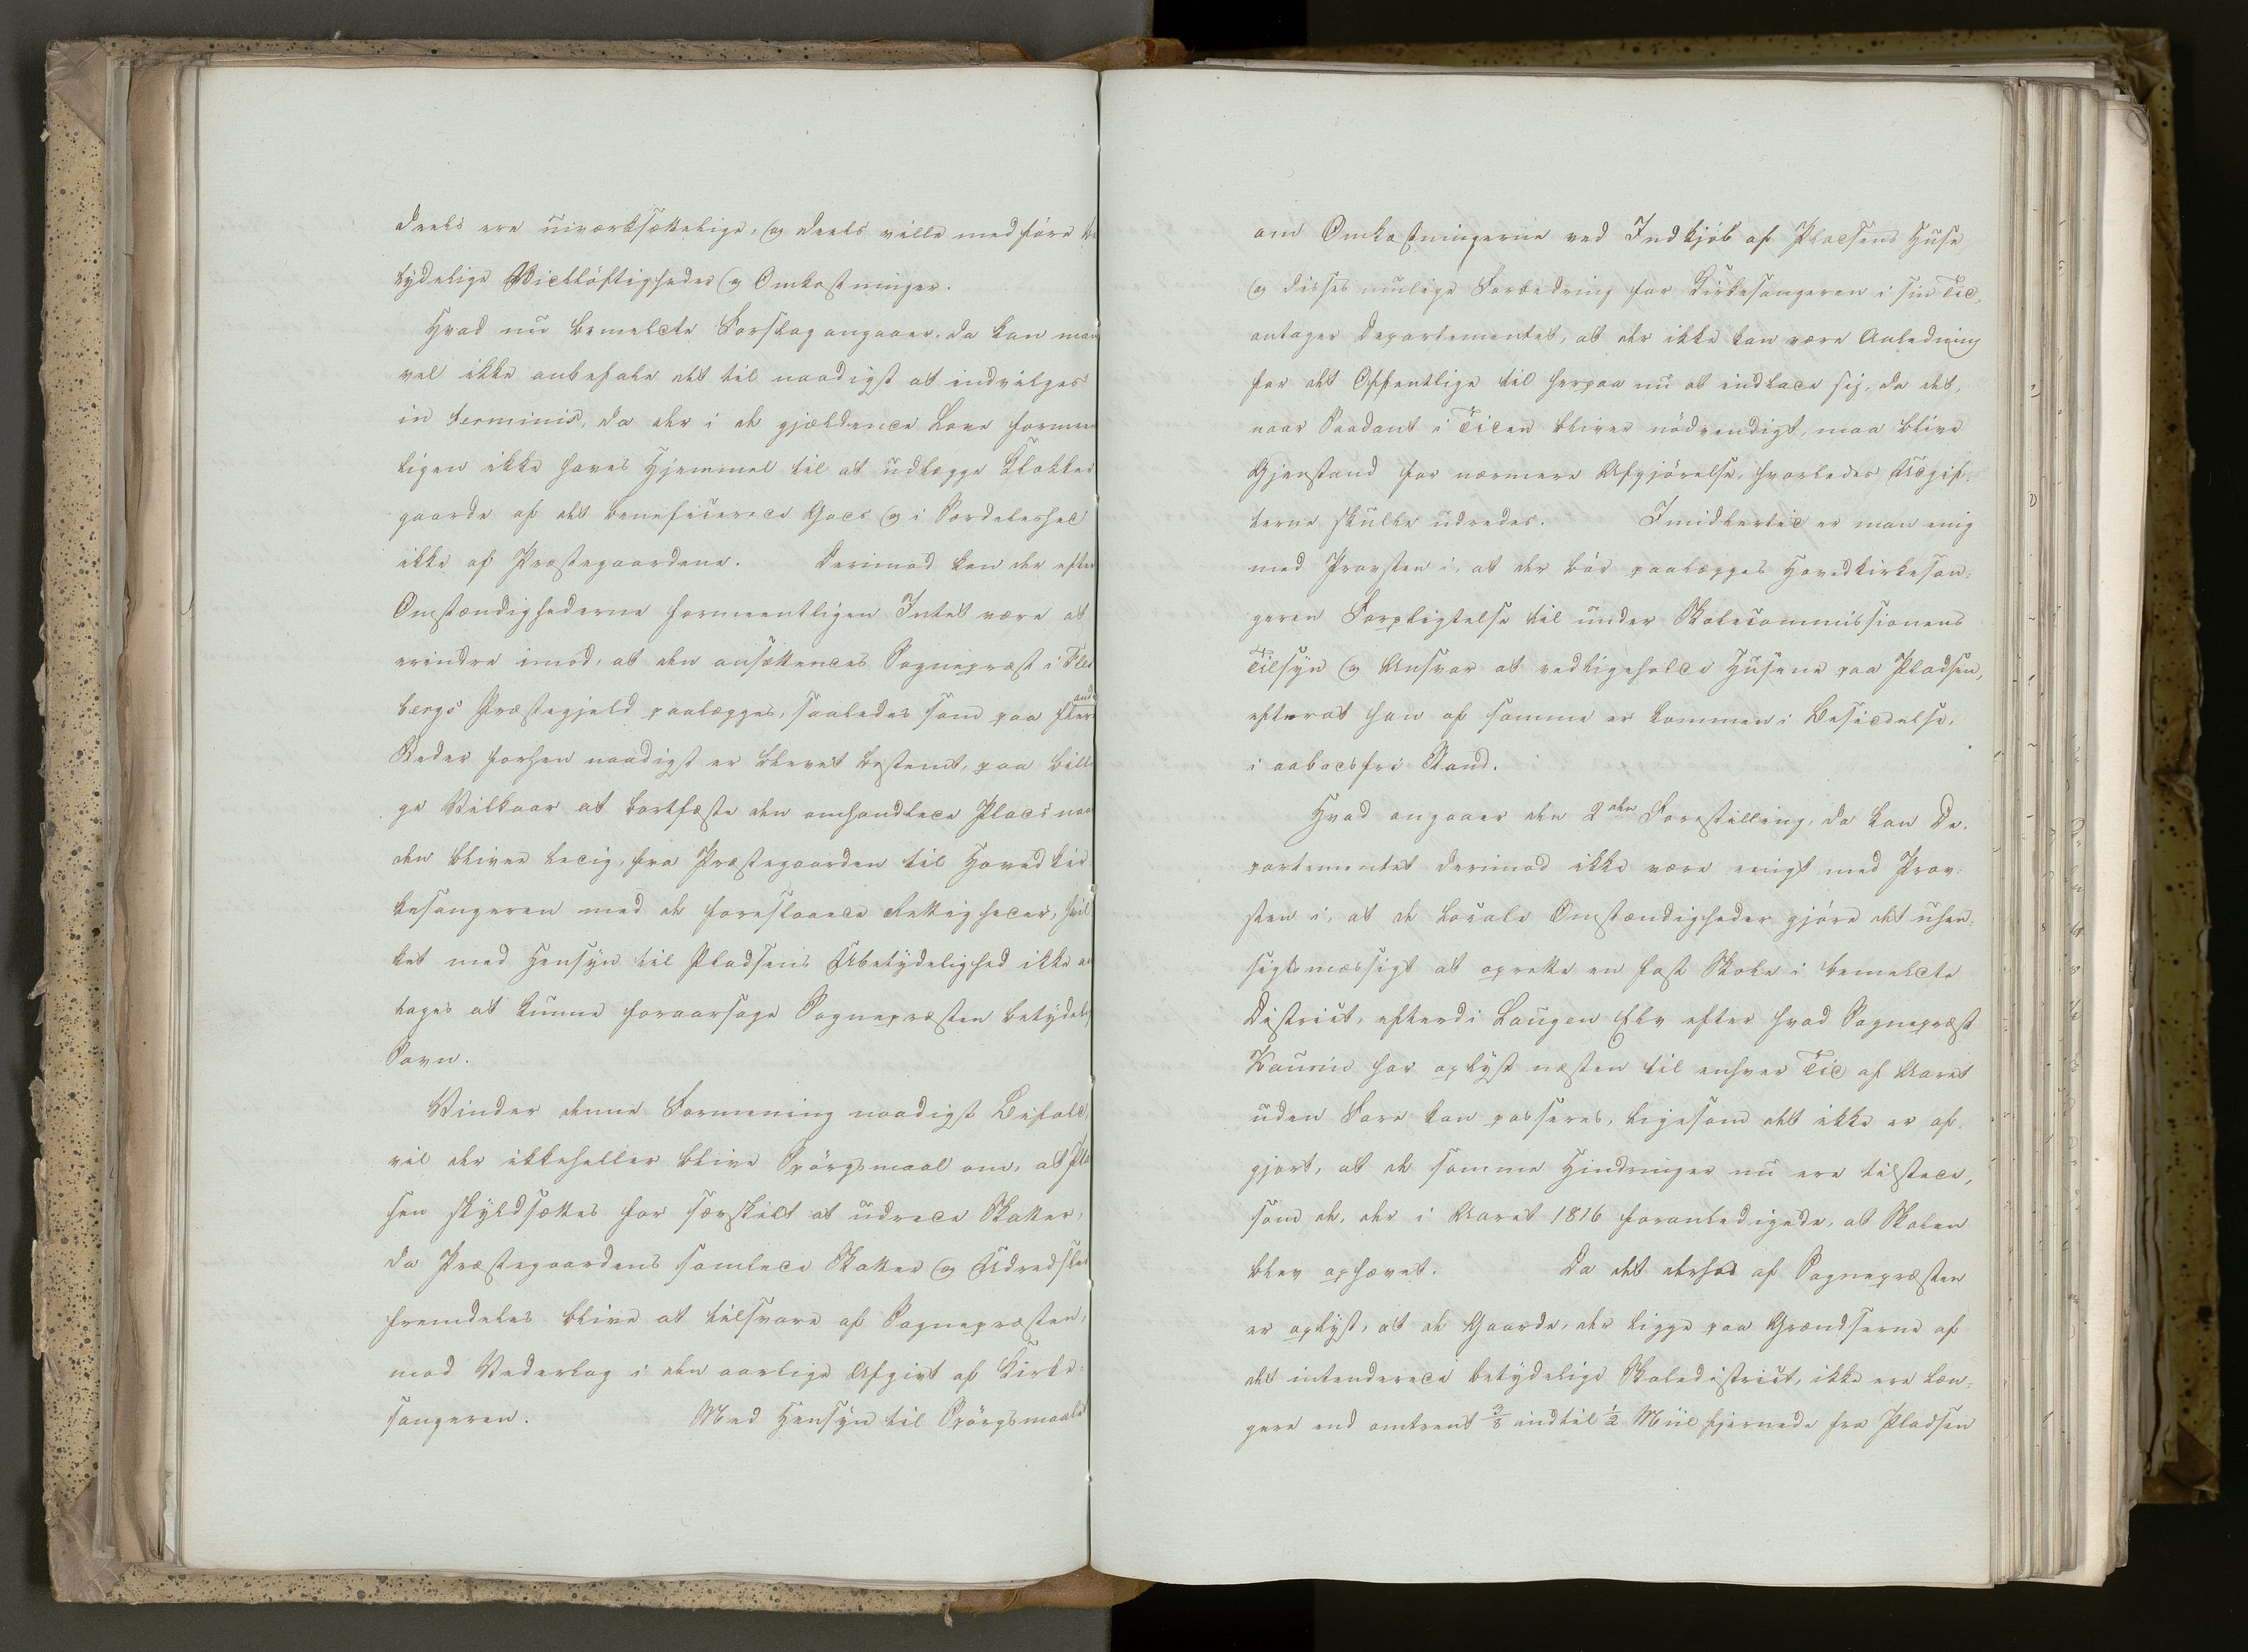 deels ere uiværksættelige, og deels ville medføre be
tydelige Vidtløftigheder og Omkostninger.
Hvad nu bemeldte Forslag angaaer, da kan man
vel ikke anbefale det til naadigst at indvilges
in terminis, da der i de gjældende Love formeent
ligen ikke haves Hjemmel til at udlægge Klokker
gaarde af det beneficerede Gods og i Særdeleshed
ikke af Præstegaardene. Derimod kan der efter
Omstændighederne formeentligen Intet være at
erindre imod, at den ansættendes Sognepræst i Fles
bergs Præstegjeld paalægges, saaledes som paa flere andre
Steder forhen naadigst er blevet bestemt, paa billi
ge Vilkaar at bortfæste den omhandlede Plads naar
den bliver ledig, fra Præstegaarden til Hovedkir
kesangeren med de foreslaaede Rettigheder, hvil
ket med Hensyn til Pladsens Ubetydelighed ikke an
tages at kunne foraarsage Sognepræsten betydelig
Savn.
Vinder denne Formening naadigst Bifald,
vil der ikkeheller blive Spørgsmaal om, at Plad
sen skyldsættes for særskilt at udrede Skatter,
da Præstegaardens samlede Skatter og Udredsler
fremdeles blive at tilsvare af Sognepræsten,
mod Vederlag i den aarlige Afgivt af Kirke=
sangeren. Med Hensyn til Spørgsmaalet
om Omkostningerne ved Indkjøb af Pladsens Huse
og disses mulige Forbedring for Kirkesangeren i sin Tid,
antager Departementet, at der ikke kan være Anledning
for det Offentlige til herpaa nu at indlade sig, da det,
naar Saadant i Tiden bliver nødvendigt, maa blive
Gjenstand for nærmere Afgjørelse, hvorledes Udgif=
terne skulle udredes. Imidlertid er man enig
med Provsten i, at der bør paalægges Hovedkirkesan=
geren Forpligtelse til under Skolecommissionens
Tilsyn og Ansvar at vedligeholde Husene paa Pladsen,
efterat han af samme er kommen i Besiddelse,
i aabodsfri Stand.
Hvad angaaer den 2den Forestilling, da kan De=
partementet derimod ikke være enigt med Prov=
sten i, at de locale Omstændigheder gjøre det uhen=
sigtsmæssigt at oprette en fast Skole i bemeldte
District, efterdi Laugen Elv efter hvad Sognepræst
Kaurin har oplyst næsten til enhver Tid af Aaret
uden Fare kan passeres, ligesom det ikke er af=
gjort, at de samme Hindringer nu ere tilstede,
som de, der i Aaret 1816 foranledigede, at Skolen
blev ophævet. Da det derhos af Sognepræsten
er oplyst, at de Gaarde, der ligge paa Grændserne af
det intenderede betydelige Skoledistrict, ikke ere læn=
gere end omtrent 3/8 indtil 1/2 Miil fjernede fra Pladsen